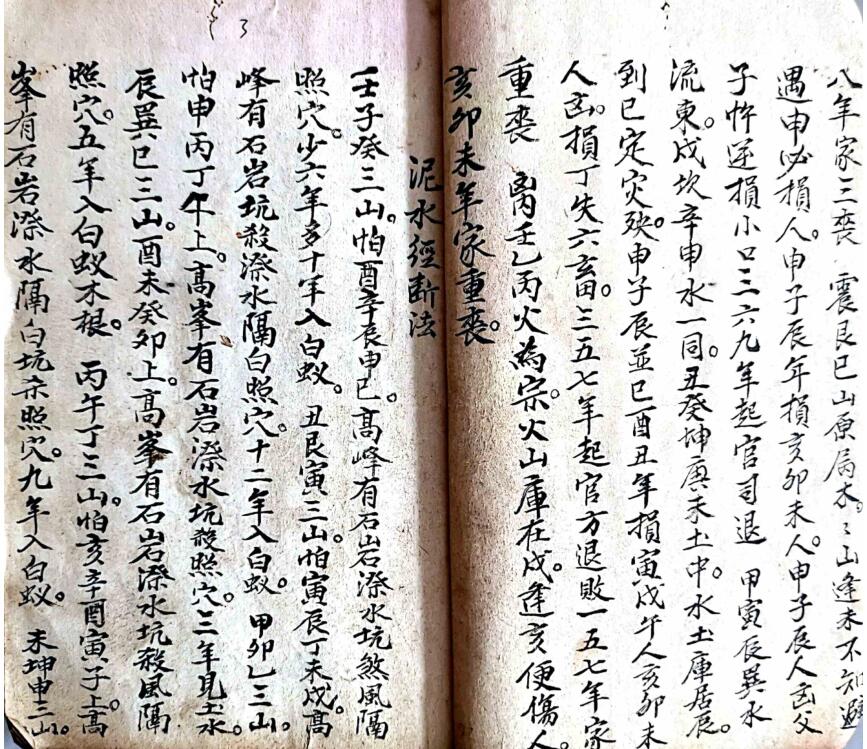 八年家三喪 震艮巳山原属木。〻山逢未不知避
遇申必損人。申子辰年損亥卯未人。申子辰人凶父
子忤逆損小口三六九年起官司退 甲寅辰巽水
流東。戌坎辛申水一同。丑癸坤庚未土中水土庫居辰。
到巳定灾殃。申子辰並巳酉丑年損寅戌午人亥卯未
人凶。損丁失六畜。三五七年起官方退敗一五七年家
重喪 离壬乙丙火為宗。火山庫在戌。逢亥便傷人。
亥卯未年家重喪。
泥水經断法
壬子癸三山。怕酉辛辰申巳。高峰有石岩漈水坑煞風隔
照穴。少六年多十年入白蚁。 丑艮寅三山。怕寅辰丁未戌。高
峰有石岩坑殺漈水隔白照穴。十二年入白蚁。 甲卯乙三山。
怕申丙丁午上。高峯有石岩漈水坑殺照穴。三年見土水。
辰巽巳三山。酉未癸卯上。高峯有石岩漈水坑殺風隔
照穴。五年入白蚁木根。 丙午丁三山。怕亥辛酉寅子上。高
峯有石岩漈水隔白坑杀照穴。九年入白蚁。 未坤申三山。